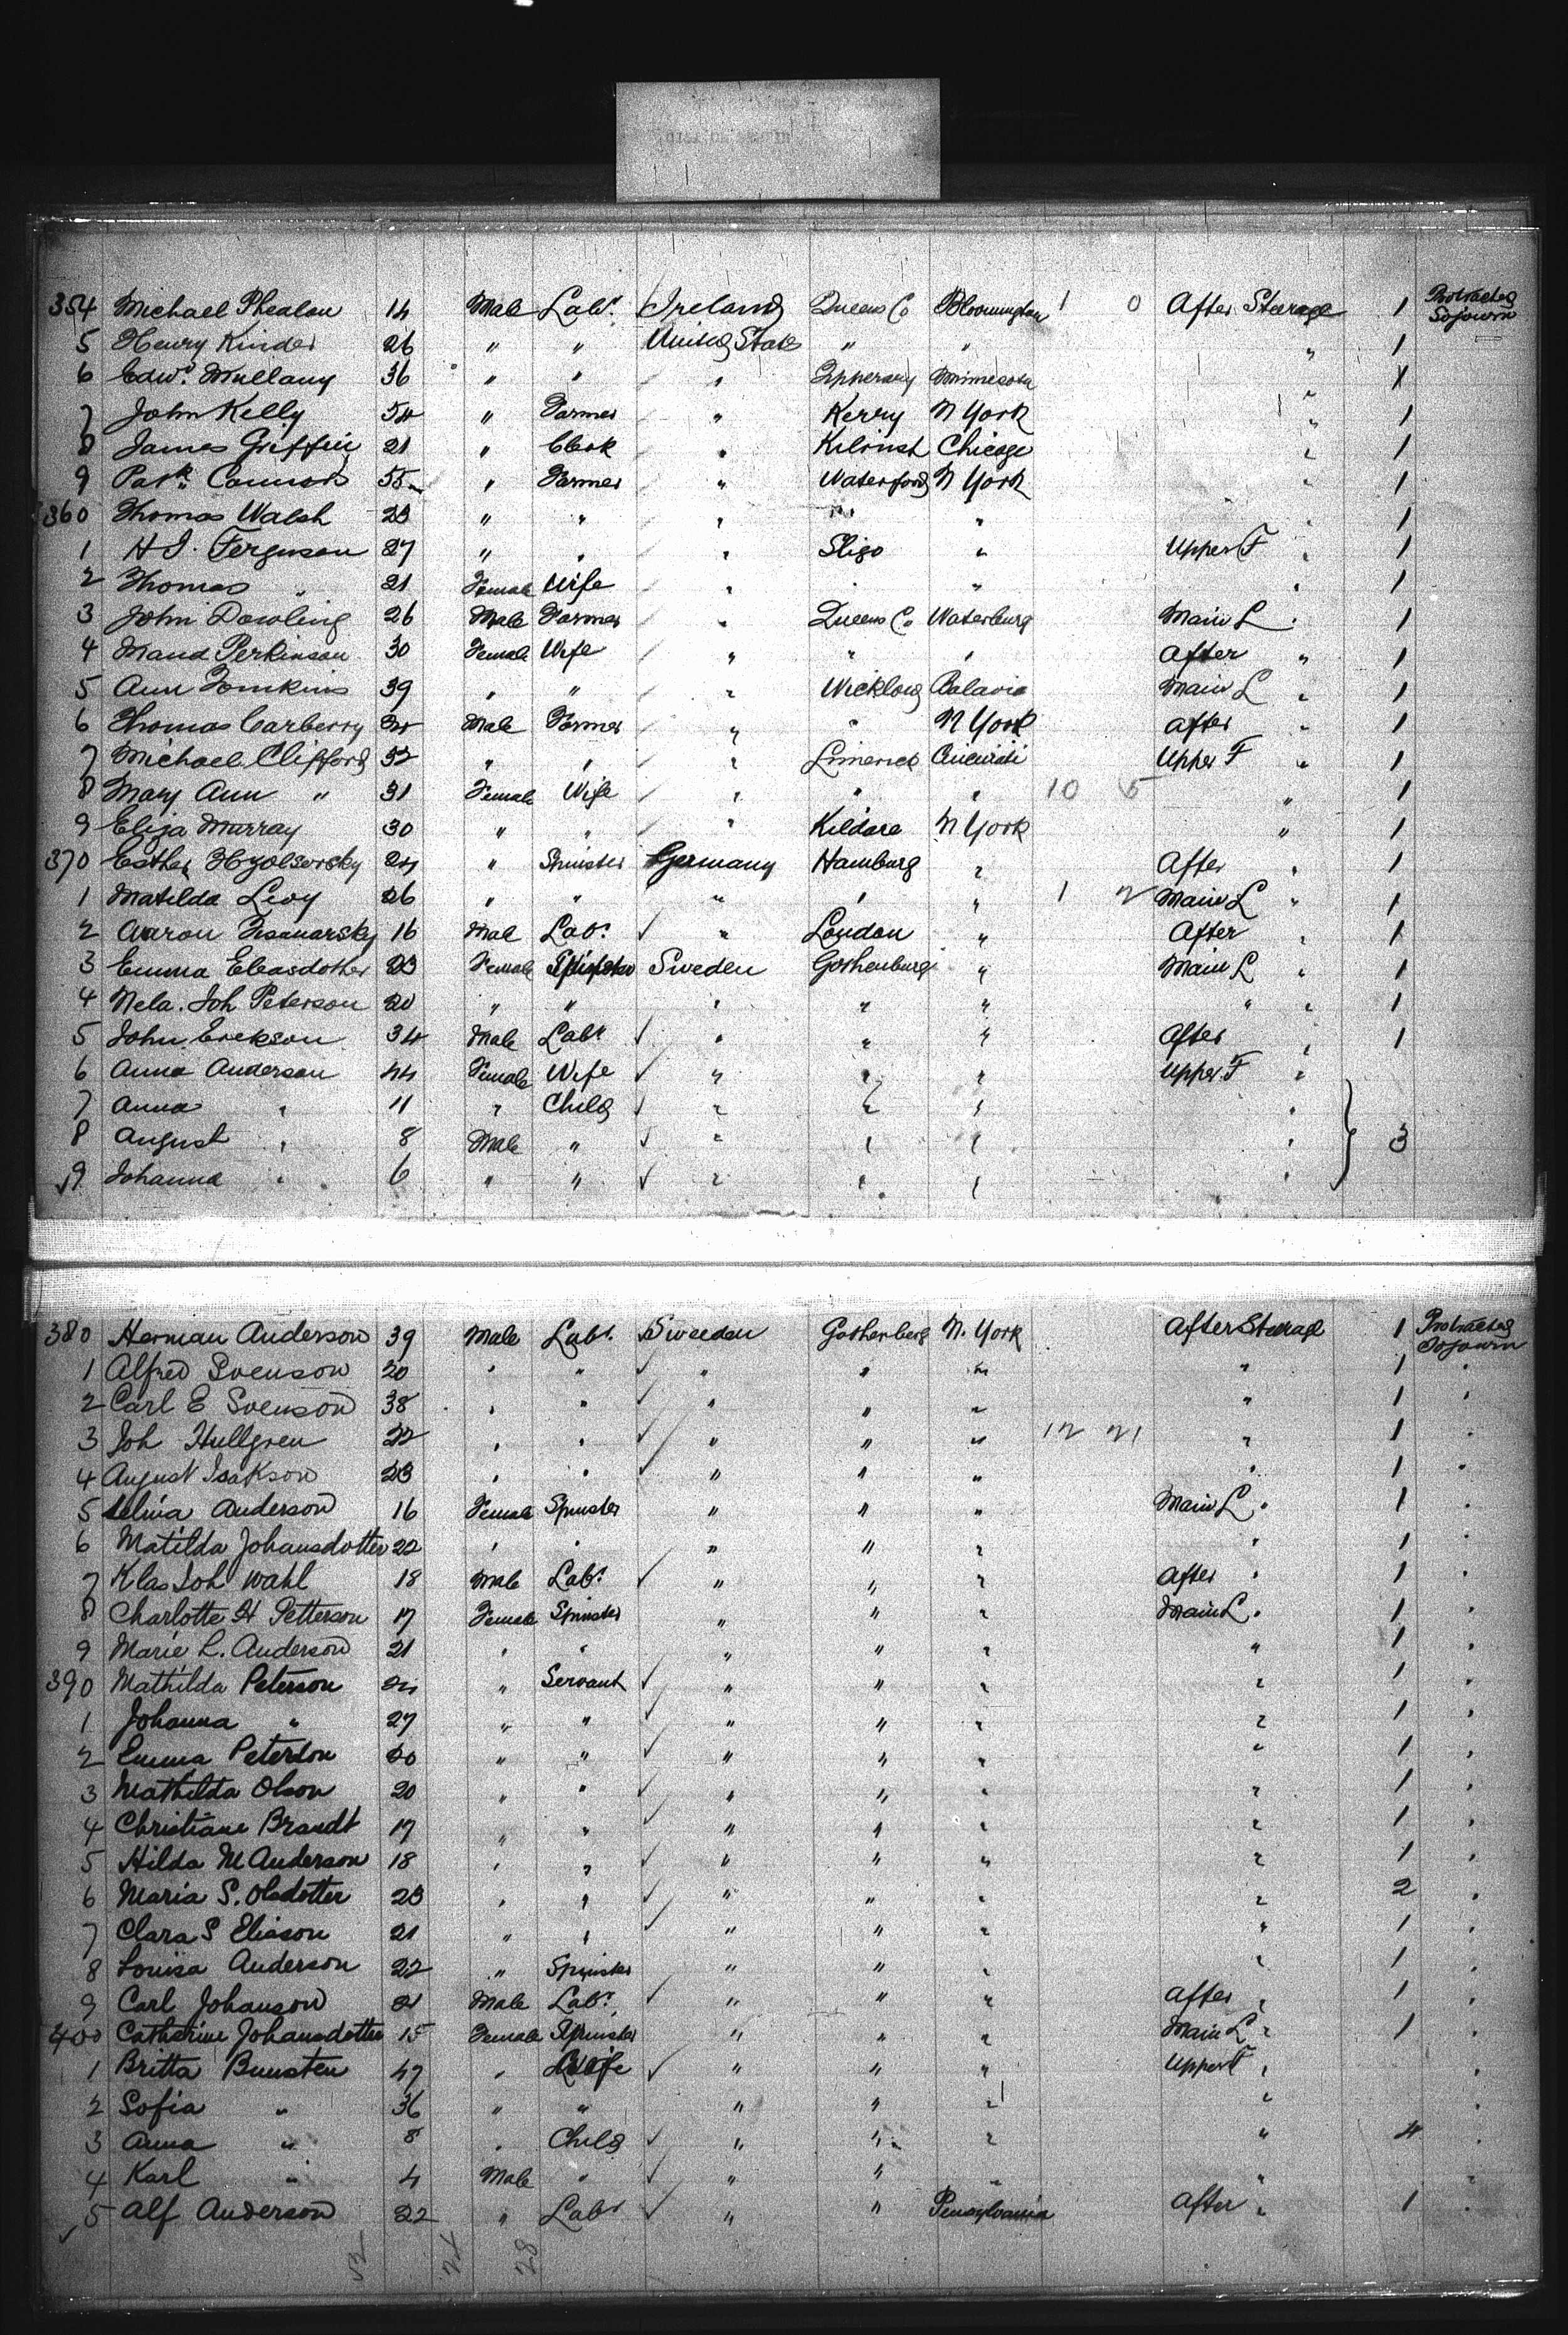 354 Michael Phealan 14 Male Labr. Ireland Queens Co Bloomington 1 0 After Steerage 1 Protracted Sojourn
5 Henry Kinder 26 " " United States " " " 1
6 Edwd. Mullany 36 " " " Tipperary Minnesota " 1
7 John Kelly 54 " Farmer " Kerry N York " 1
8 James Griffin 21 " Clerk " Kilrush Chicago " 1
9 Patk. 55 " Farmer " Waterford N York " 1
360 Thomas Walsh 23 " " " " " " 1
1 H J. Ferguson 27 " " " Sligo " Upper F " 1
2 Thomas " 21 Female Wife " " " " 1
3 John Dowling 26 Male Farmer " Queens Co Waterburg Main L " 1
4 Maud Perkinson 30 Female Wife " " " After " 1
5 Ann Tomkins 39 " " " Wicklow Batavia Main L " 1
6 Thomas Carberry Male Farmer " " N York After " 1
7 Michael Clifford 32 " " " Limerick Cincinati Upper F " 1
8 Mary Ann " 31 Female Wife " " " 10 5 " 1
9 Eliza Murray 30 " " " Kildare N York " 1
370 Esther 24 " Spinster Germany Hamburg " After " 1
1 Matilda Levy 26 " " " " " 1 2 Main L " 1
2 Aaron 16 Mal Labr. ✓ " London " After " 1
3 Emma Eleasdotter 23 Female Spinster Sweden Gothenburg " Main L " 1
4 Nela. Joh Peterson 20 " " " " " " " 1
5 John Erekson 34 Male Labr ✓ " " " After " 1
6 Anna Anderson 44 Female Wife ✓ " " " Upper F "
7 Anna " 11 " Child ✓ " " " "
8 August " 8 Male " ✓ " " " " } 3
9 Johanna " 6 " " ✓ " " " "
380 Herman Anderson 39 Male Labr. ✓ Sweeden Gothenberg N. York After Steerage 1 Protracted Sojourn
1 Alfred Svenson 20 " " ✓ " " " " 1 "
2 Carl E Svenson 38 " " ✓ " " " " 1 "
3 Joh Hullgren 22 " " ✓ " " " 12 21 " 1 "
4 August Isakson 23 " " ✓ " " " " 1 "
5 Selma Anderson 16 Female Spinster " " " Main L " 1 "
6 Matilda Johansdotter 22 " " " " " " 1 "
7 Klas Joh Wahl 18 Male Labr. ✓ " " " After " 1 "
8 Charlotte H Petterson 17 Female Spinster " " " Main L " 1 "
9 Marie L. Anderson 21 " " " " " " 1 "
390 Mathilda Peterson " Servant ✓ " " " " 1 "
1 Johanna " 27 " " ✓ " " " " 1 "
2 Emma Peterson 20 " " ✓ " " " " 1 "
3 Mathilda Olson 20 " " ✓ " " " " 1 "
4 Christiane Brandt 17 " " ✓ " " " " 1 "
5 Hilda M Anderson 18 " " ✓ " " " " 1 "
6 Maria S. Olsdotter 23 " " ✓ " " " " 2 "
7 Clara S Eliason 21 " " ✓ " " " " 1 "
8 Louisa Anderson 22 " Spinster " " " " 1 "
9 Carl Johanson 21 Male Labr. ✓ " " " After " 1 "
400 Catharine Johansdotter 15 Female Spinster " " " Main L " 1 "
1 Britta Bunsten 47 " Wife ✓ " " " Upper F " "
2 Sofia " 36 " " " " " " "
3 Anna " 8 " Child ✓ " " " " 4 "
4 Karl " 4 Male " ✓ " " " " "
5 Alf Anderson 22 " Labr ✓ " " Pensylvania After " 1 "
52 24 28